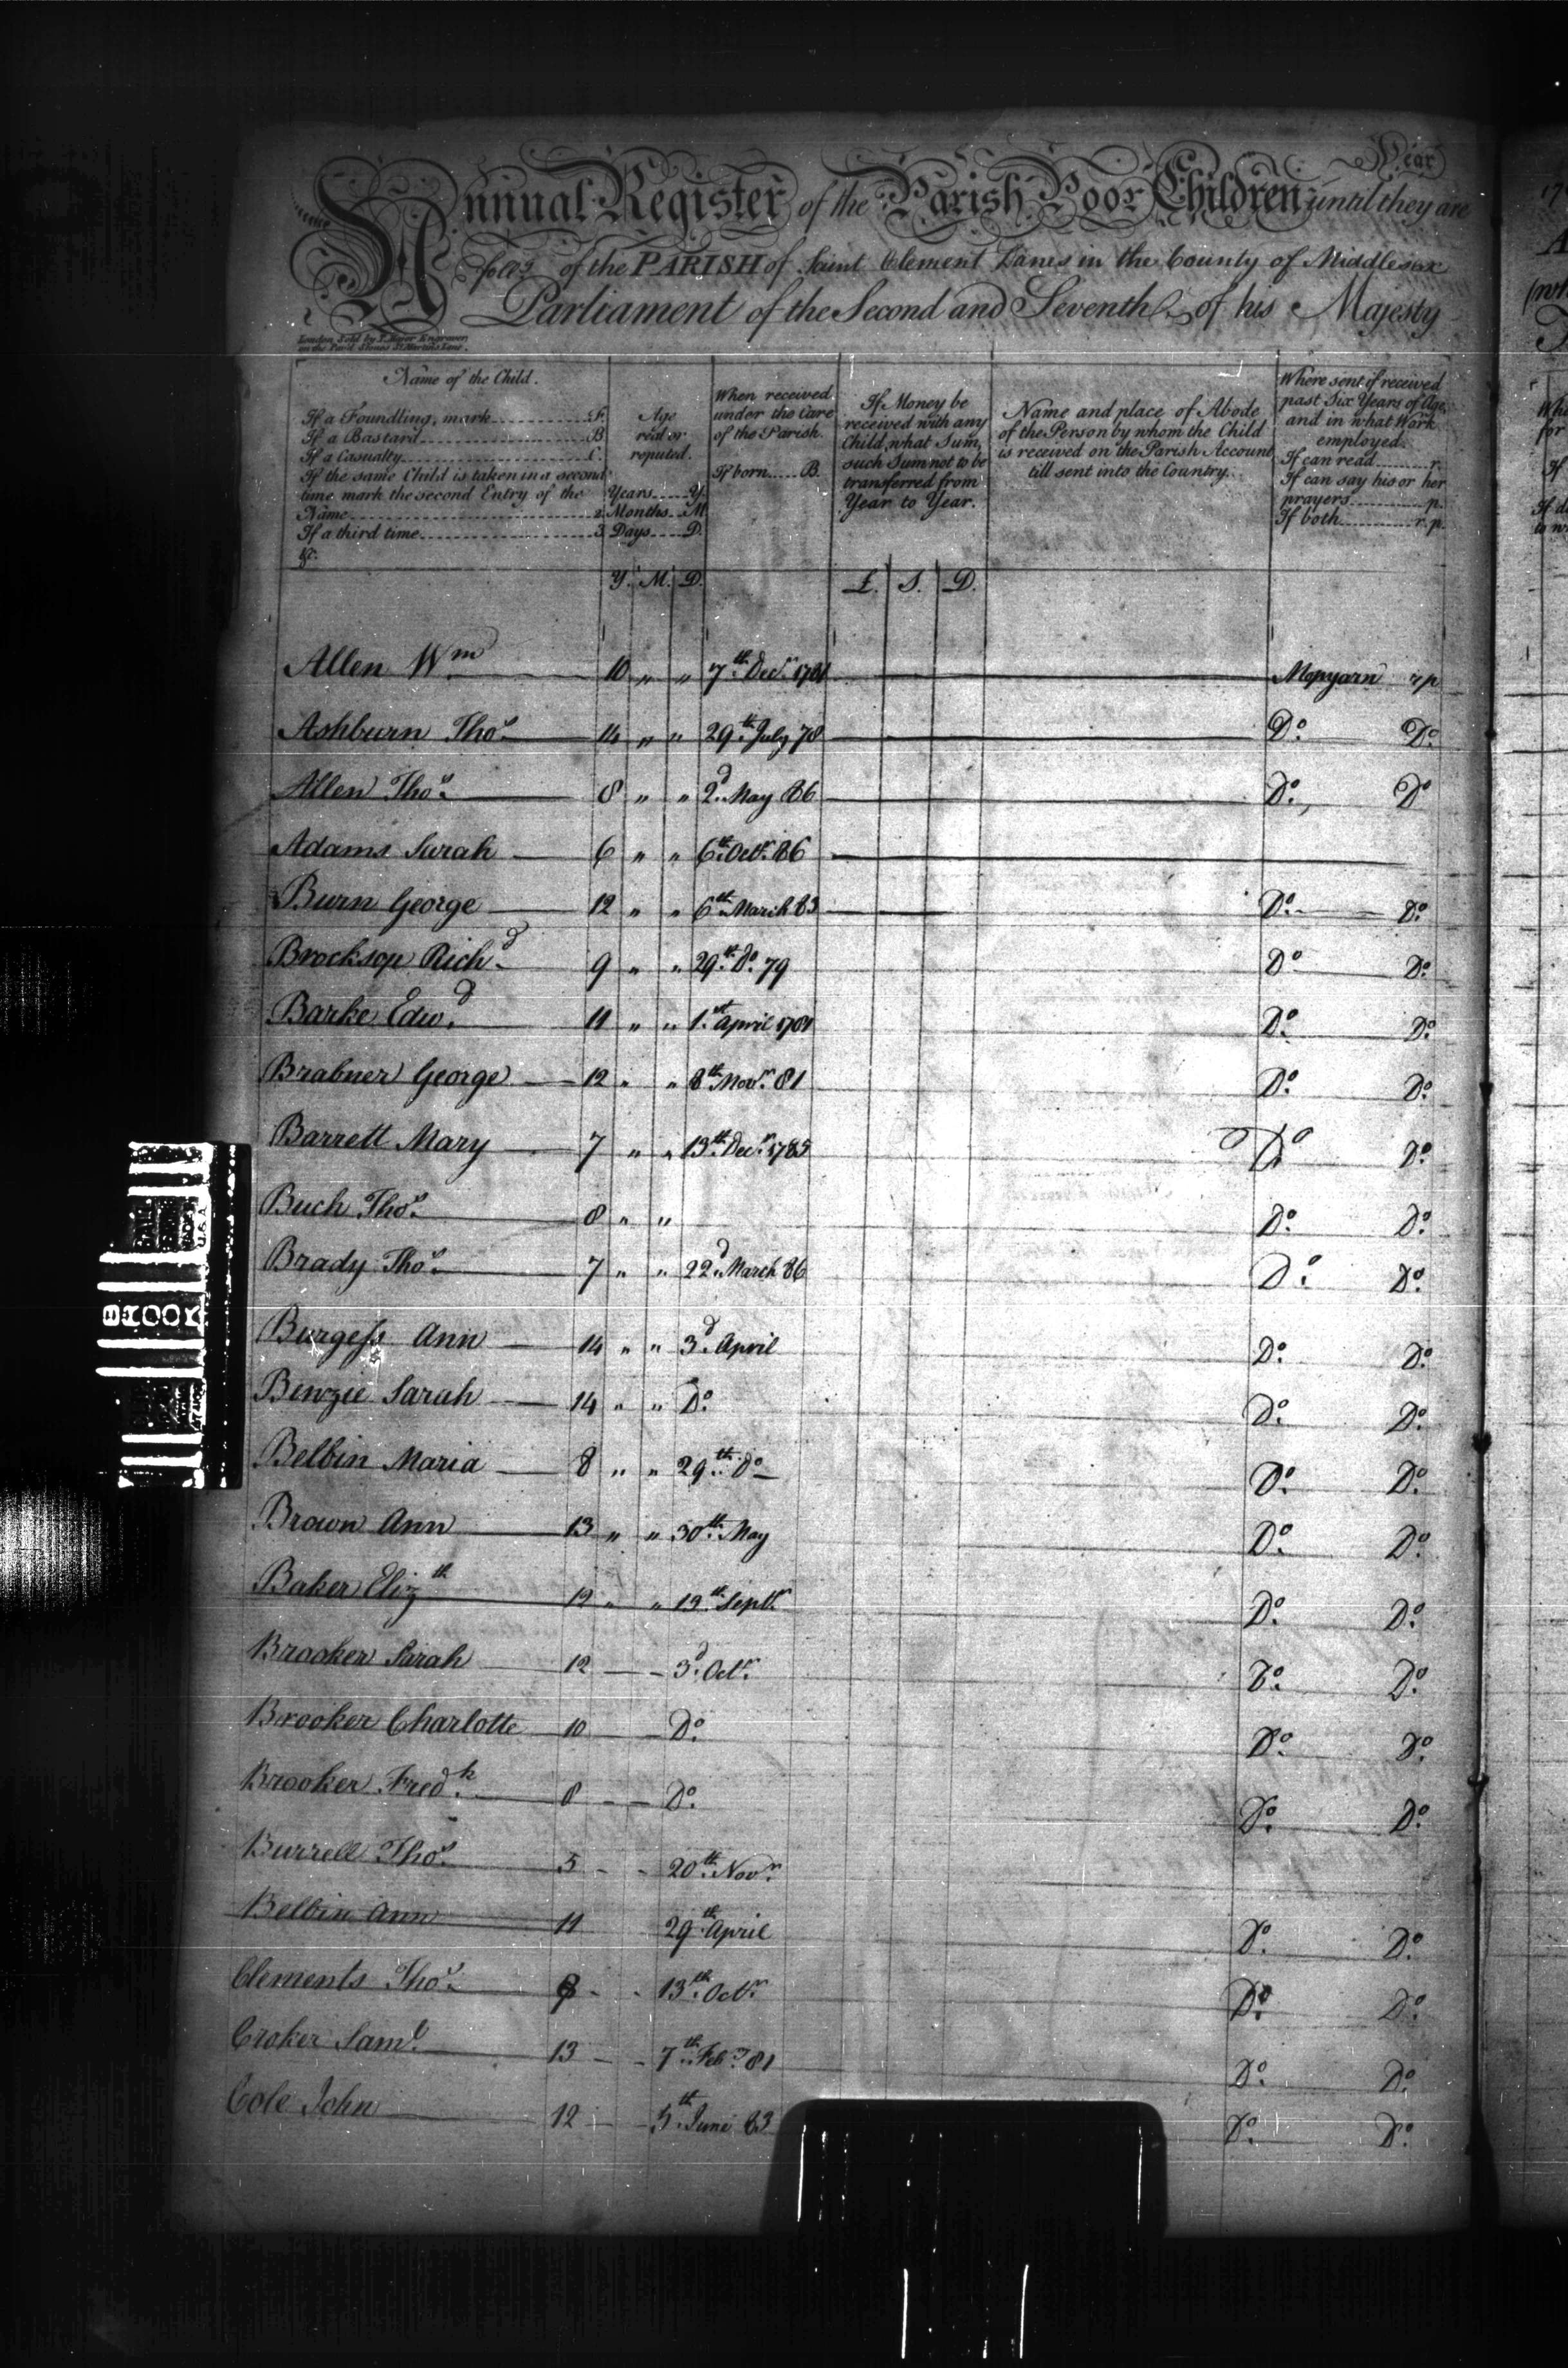 Year
Annual Register of the Parish Poor Children until they are
of the PARISH of Saint Clement Danes in the County of Middlesex
Parliament of the Second and Seventh of his Majesty
London Sold by T. Engraver
on the Pavd Stones St Martins Lane.
Name of the Child.
If a Foundling, mark F.
If a Bastard B
If a Casualty C.
If the same Child is taken in a second
time mark the second Entry of the
Name 2.
If a third time 3.
&c.
Age
real or
reputed.
Years Y.
Months M.
Days D.
When received
under the Care
of the Parish.
If born B.
If Money be
received with any
Child, what Sum,
such Sum not to be
transferred from
Year to Year.
Name and place of Abode
of the Person by whom the Child
is received on the Parish Account
till sent into the Country.
Where sent if received
past Six Years of Age,
and in what Work
employed.
If can read r.
If can say his or her
prayers p.
If both r. p.
Y. M. D. £. S. D.
Allen Wm 10 " " 7th Decr. 1781 Mopyarn rp
Ashburn Thos. 14 " " 29th July 78 Do. Do.
Allen Thos. 8 " " 2d. May 86 Do. Do
Adams Sarah 6 " " 6th Octr. 86
Burn George 12 " " 6th March 83 Do. Do.
Brocksop Richd. 9 " " 29th Do. 79 Do Do.
Barke Edwd. 11 " " 1st April 1781 Do. Do.
Brabner George 12 " " 8th Novr. 81 Do. Do.
Barrett Mary 7 " " 13th Decr. 1785 Do Do.
Buch Thos. 8 " " Do. Do.
Brady Thos. 7 " " 22d. March 86 Do. Do.
Burgess Ann 14 " " 3d. April Do. Do.
Benzie Sarah 14 " " Do. Do. Do.
Belbin Maria 8 " " 29th Do Do. Do.
Brown Ann 13 " " 30th May Do. Do.
Baker Elizth 12 " " 19th Septr. Do. Do.
Brooker Sarah 12 3d. Octr. Do. Do.
Brooker Charlotte 10 Do. Do. Do.
Brooker Fredk. 8 Do. Do. Do.
Burrell Thos. 5 20th Novr.
Belbin Ann 11 29th April Do. Do.
Clements Thos. 13th Octr. Do. Do.
Croker Saml. 13 7th Feby 81 Do. Do.
Cole John 12 5th June 83 Do. Do.
BROOK
U.S.A.